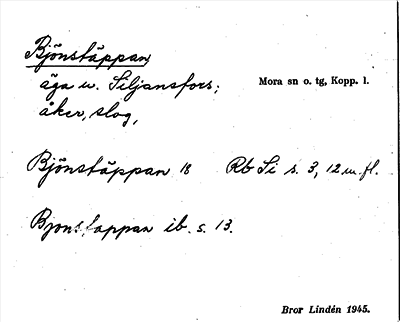 Björstäppan,
äga u. Siljansfors;
Mora sn o. tg, Kopp. l.
åker, slog,
Björstäppan 18 Rb Si s. 3, 12 m. fl.
Bjonstappan ib. s. 13.
Bror Lindén 1945.